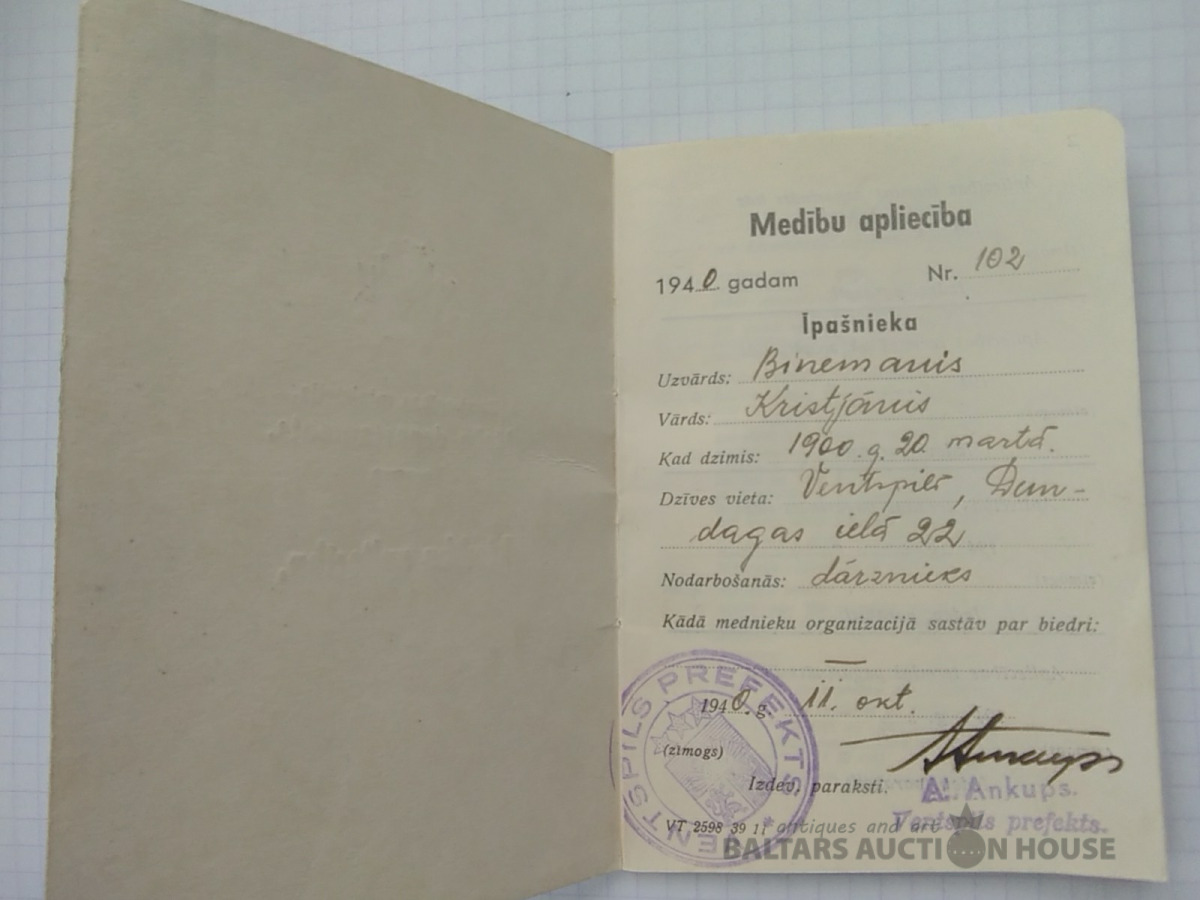 Medību apliecība
1940. gadam Nr. 102
Īpašnieka
Uzvārds: Binemanis
Vārds: Kristjānis
Kad dzimis: 1900. g. 20 martā.
Dzīves vieta: Ventspilī, Dun-
dagas ielā 22
Nodarbošanās: dārznieks
Kādā mednieku organizacijā sastāv par biedri:
—
1940. g. 11. okt.
(zīmogs)
Izdev. paraksti.
A. Ankups.
Ventspils prefekts.
VENTSPILS PREFEKTS *
VT 2598 39 11
antiques and art
BALTARS AUCTION HOUSE